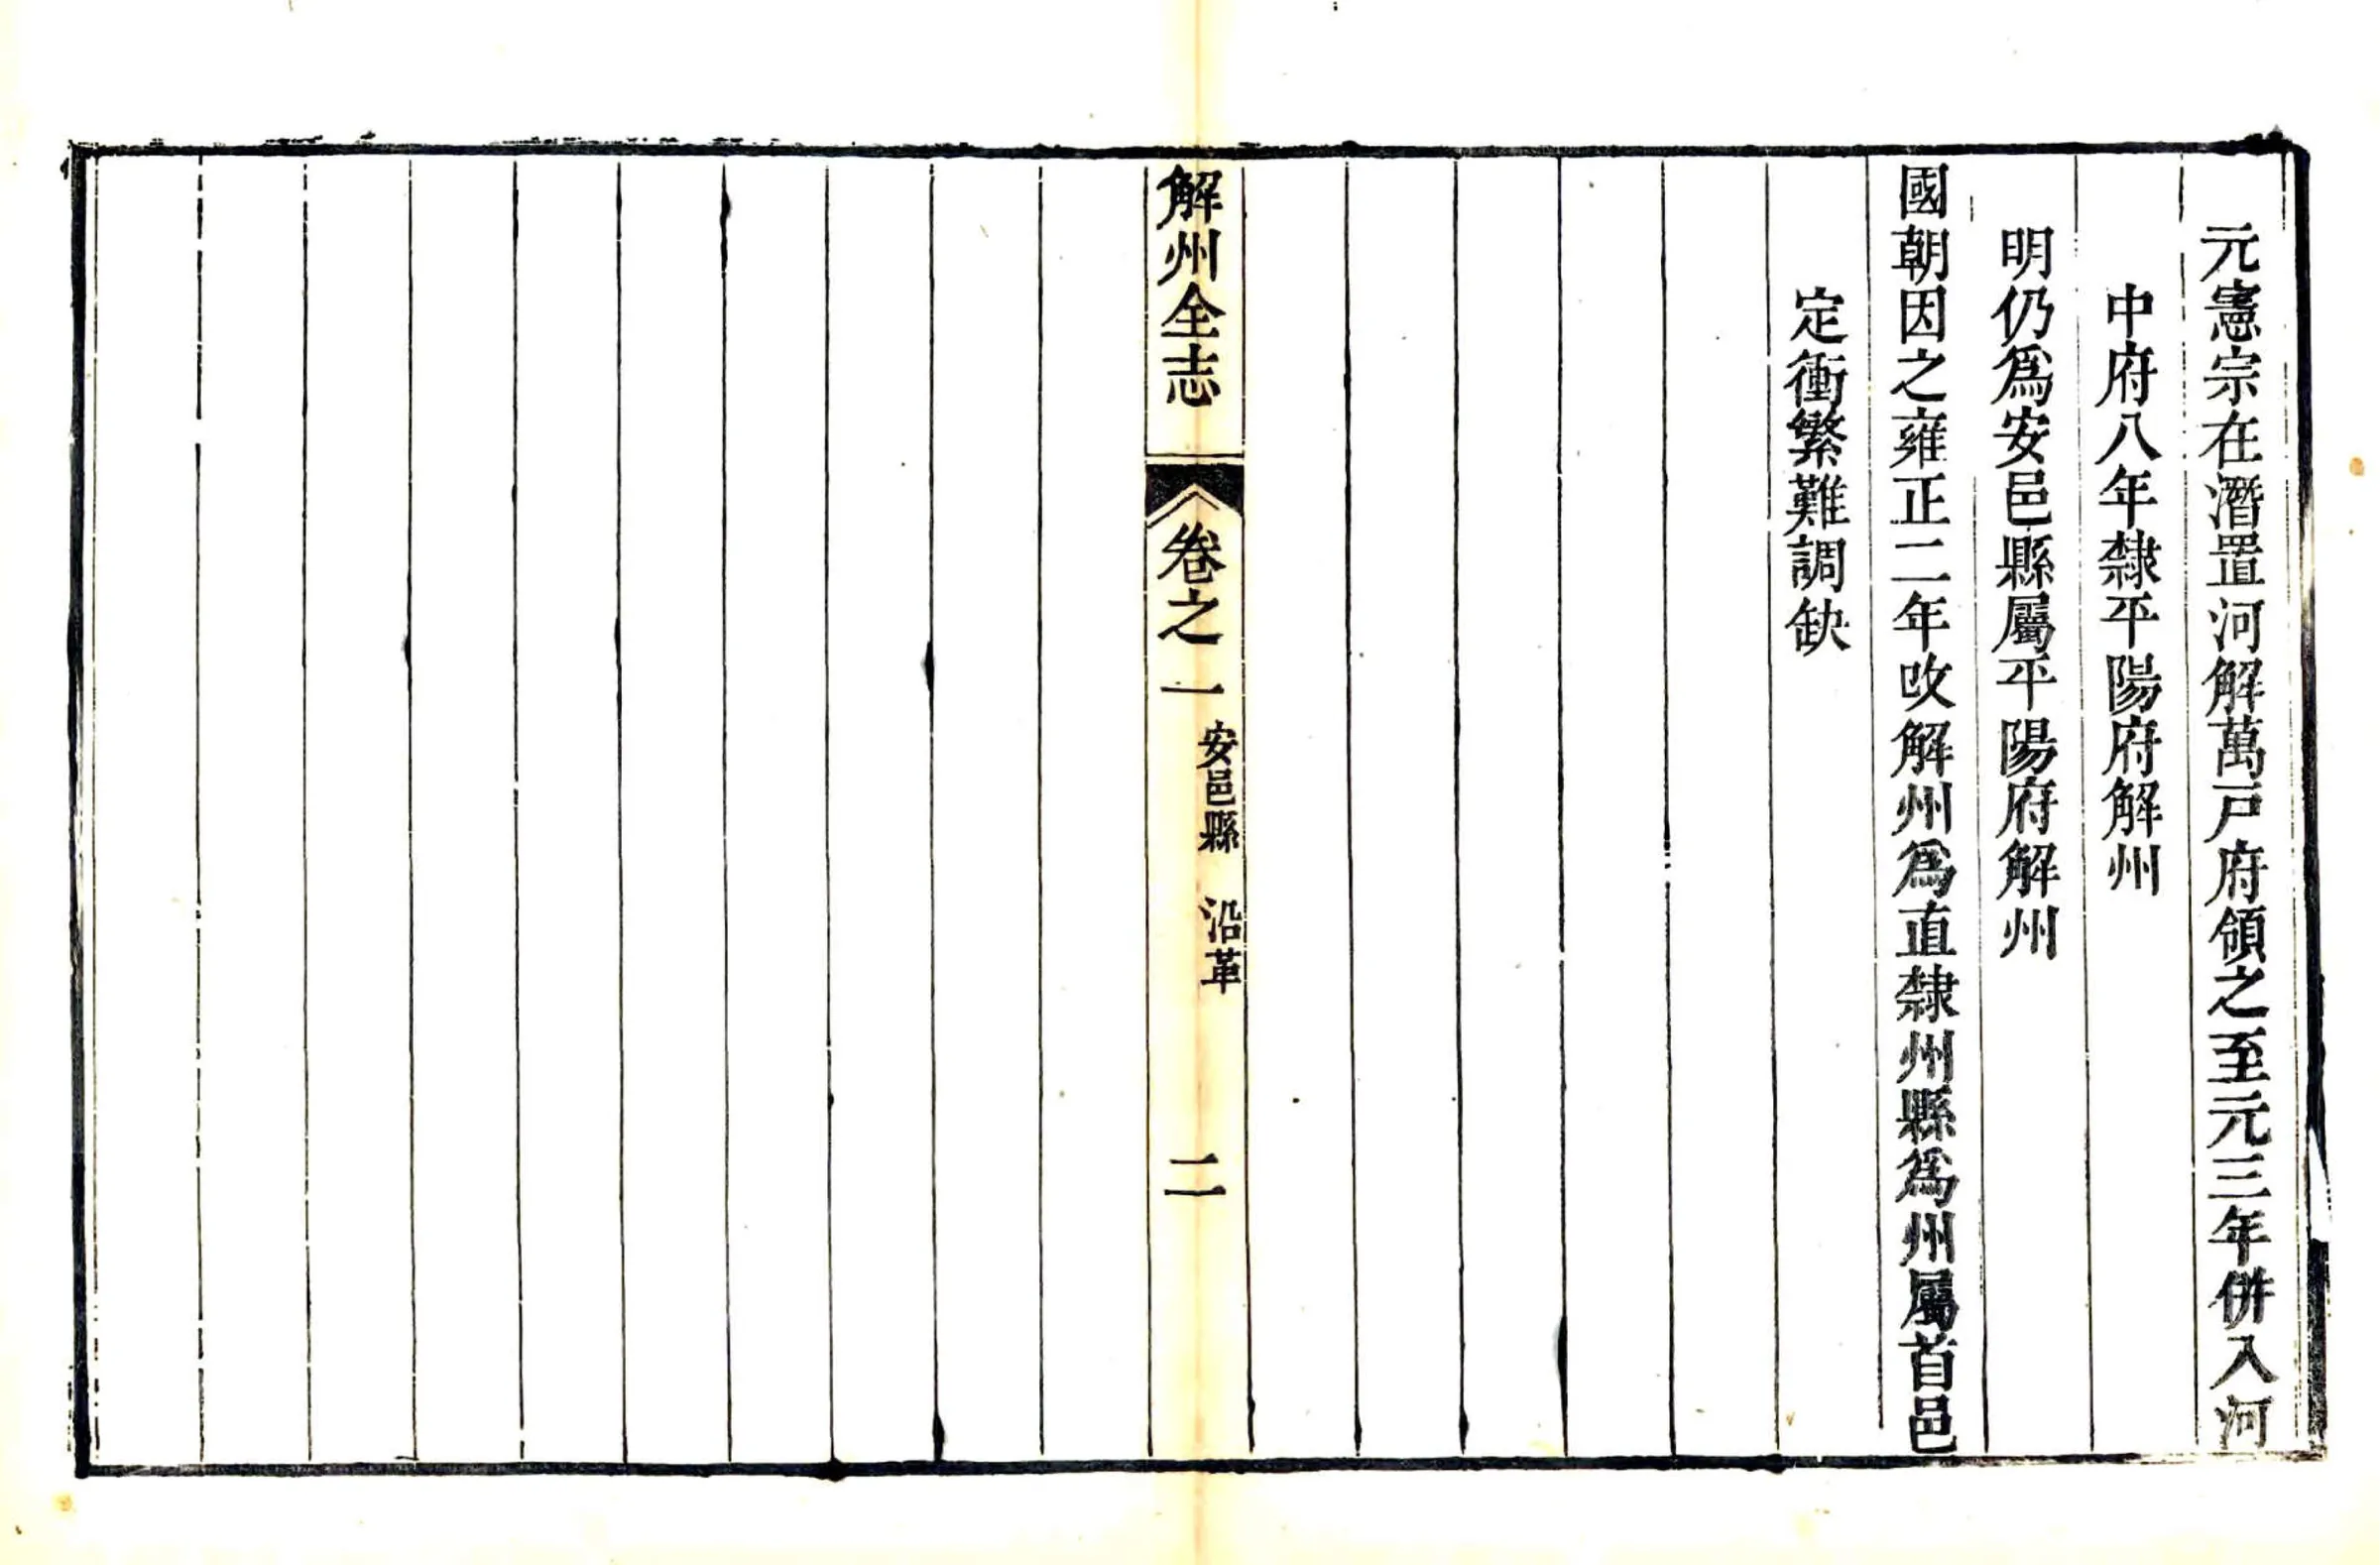 元憲宗在潛置河解萬戸府領之至元三年併入河
中府八年隸平陽府解州
明仍爲安邑縣屬平陽府解州
國朝因之雍正二年改解州爲直隸州縣爲州屬首邑
定衝繁難調缺
解州全志
卷之一
安邑縣 沿革
二